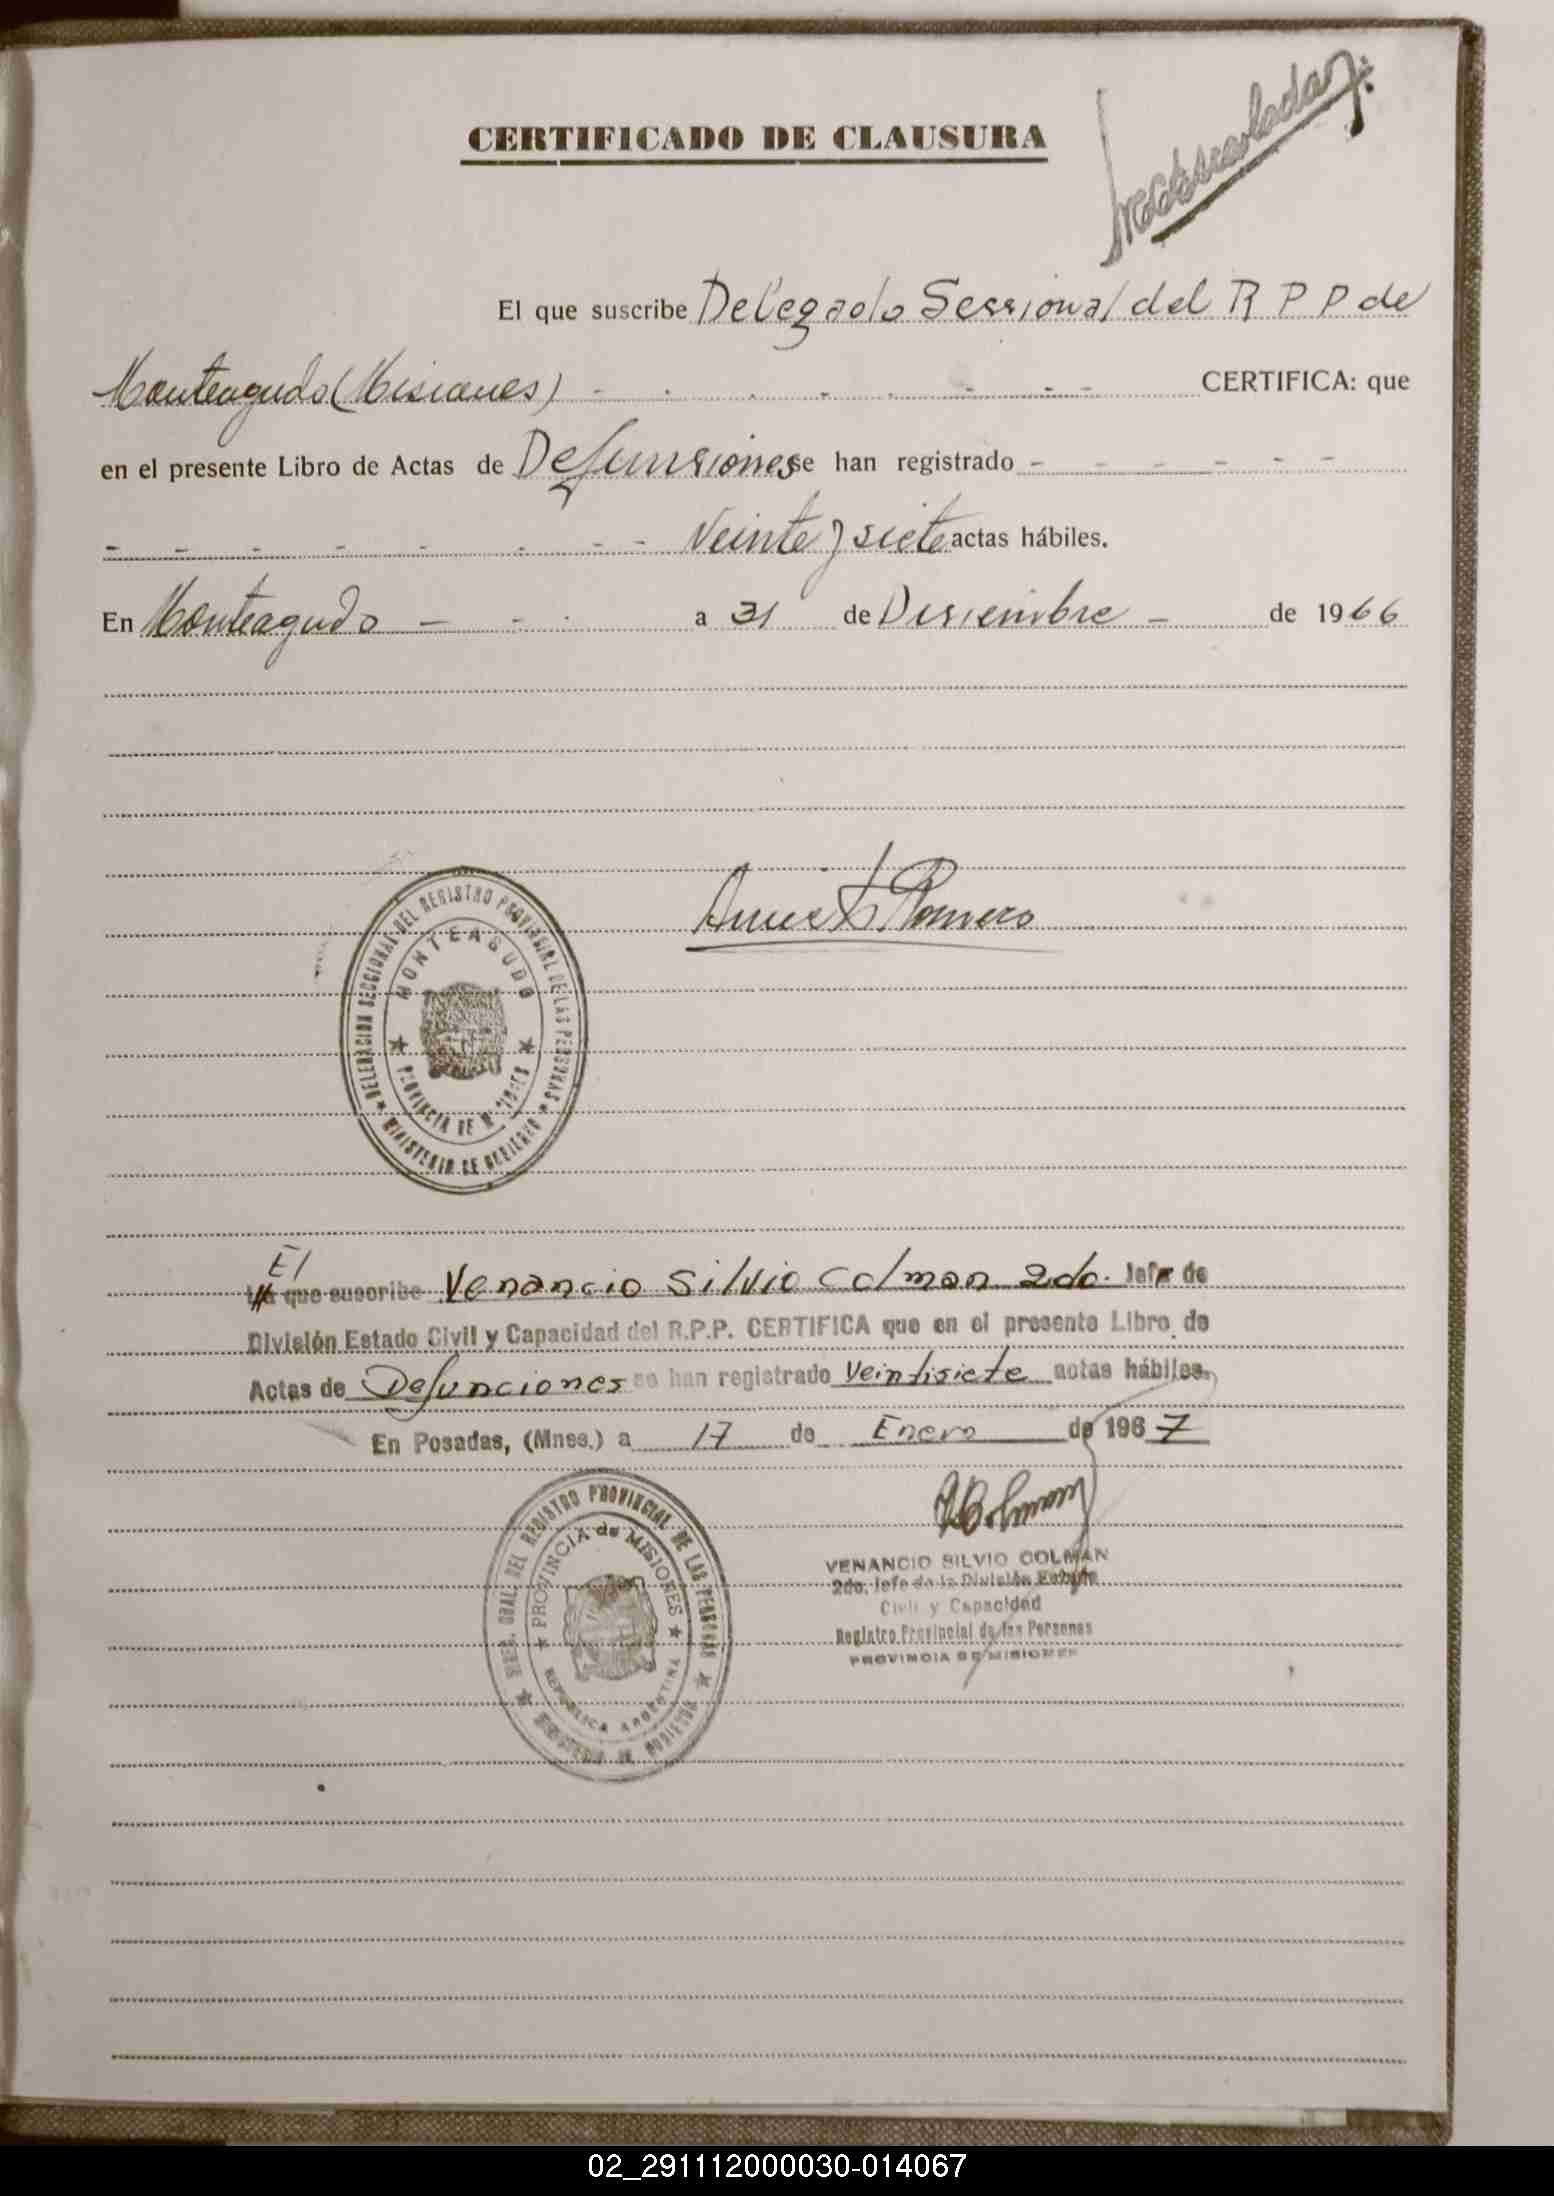 CERTIFICADO DE CLAUSURA
El que suscribe Delegado Sessional del R P P de
Monteagudo (Misiones) - . . - . - - - CERTIFICA: que
en el presente Libro de Actas de Defunsiones se han registrado - - - - - -
- - - - - - - - Veinte y siete actas hábiles.
En Monteagudo - - . a 31 de Disiembre - de 1966
Romero
DELEGACION SECCIONAL DEL REGISTRO PROVINCIAL DE LAS PERSONAS
MONTEAGUDO
PROVINCIA DE MISIONES
MINISTERIO DE GOBIERNO
El
que suscribe Venancio Silvio Colman 2do. Jefe de
División Estado Civil y Capacidad del R.P.P. CERTIFICA que en el presente Libro de
Actas de Defunciones se han registrado Veintisiete actas hábiles.
En Posadas, (Mnes.) a 17 de Enero de 1967
GRAL. DEL REGISTRO PROVINCIAL DE LAS PERSONAS
PROVINCIA de MISIONES
REPUBLICA ARGENTINA
MINISTERIO DE GOBIERNO
VENANCIO SILVIO COLMAN
2do. Jefe de la División Estado
Civil y Capacidad
Registro Provincial de las Personas
PROVINCIA DE MISIONES
02_291112000030-014067